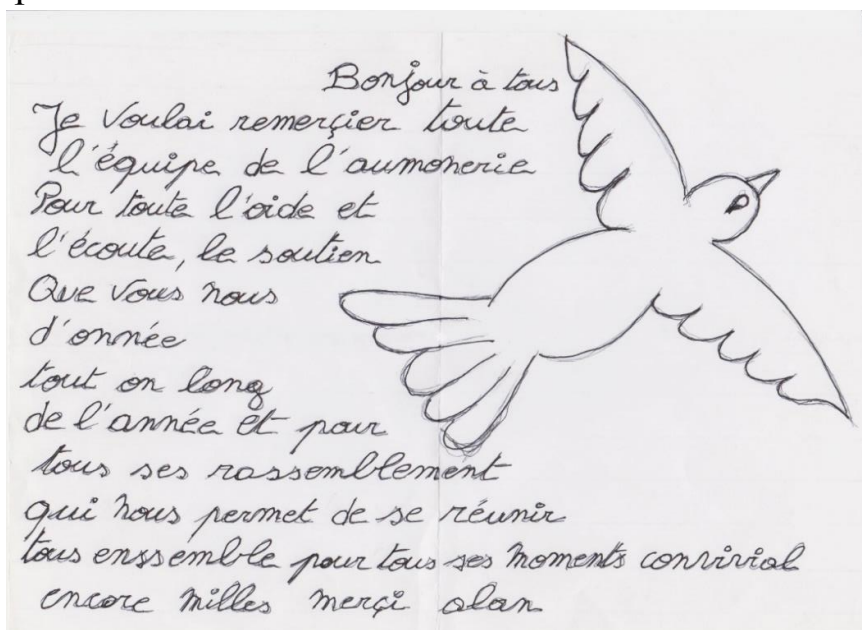 Bonjour à tous
Je voulai remerçier toute
l'équipe de l'aumonerie
Pour toute l'aide et
l'écoute, le soutien
Que vous nous
d'onnée
tout on long
de l'année et pour
tous ses rassemblement
qui nous permet de se réunir
tous enssemble pour tous ses moments convivial
encore milles merçi alan